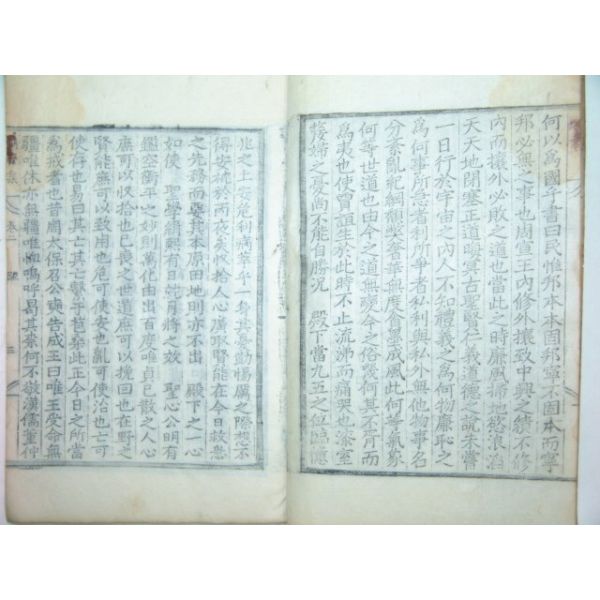 何以爲國乎書曰民惟邦本本固邦寧不固本而寧
邦必無之事也周宣王內修外攘致中興之績不修
內而外攘必敗之道也當此之時廉風掃地慾浪滔
天天地閉塞正道晦冥古聖賢仁義道德之說未嘗
一日行於宇宙之內人不知禮義之爲何物廉恥之
爲何事所急者利所爭者私利與私外無他物事名
分紊亂紀綱頹奬奢華無度貪墨成風此何等氣象
何等世道也由今之道無變今之俗幾何其不胥而
爲夷也使賈誼生於此時不止流涕而痛哭也漆室
嫠婦之憂尚不能自勝況 殿下當九五之位臨億
兆之上安危利病萃乎一身其憂勤惕厲之際想不
得安被於丙夜矣收拾人心廣取賢能在今日救急
之先務而要其本原田地則亦不出 殿下之一心
如使 聖學緝熙有日就月將之效 聖心公明有
鑑空衡平之妙則萬化由出百度唯貞已散之人心
庶可以收拾也已喪之世道庶可以挽回也在野之
賢能無可以致用也危可使安也亂可使治也亡可
使存也易曰其亡其亡繫于苞桑此正今日之所當
爲戒者也昔周太保召公奭告成王曰唯王受命無
疆唯休亦無疆唯恤嗚呼曷其柰何不敬漢儒董仲
卷一